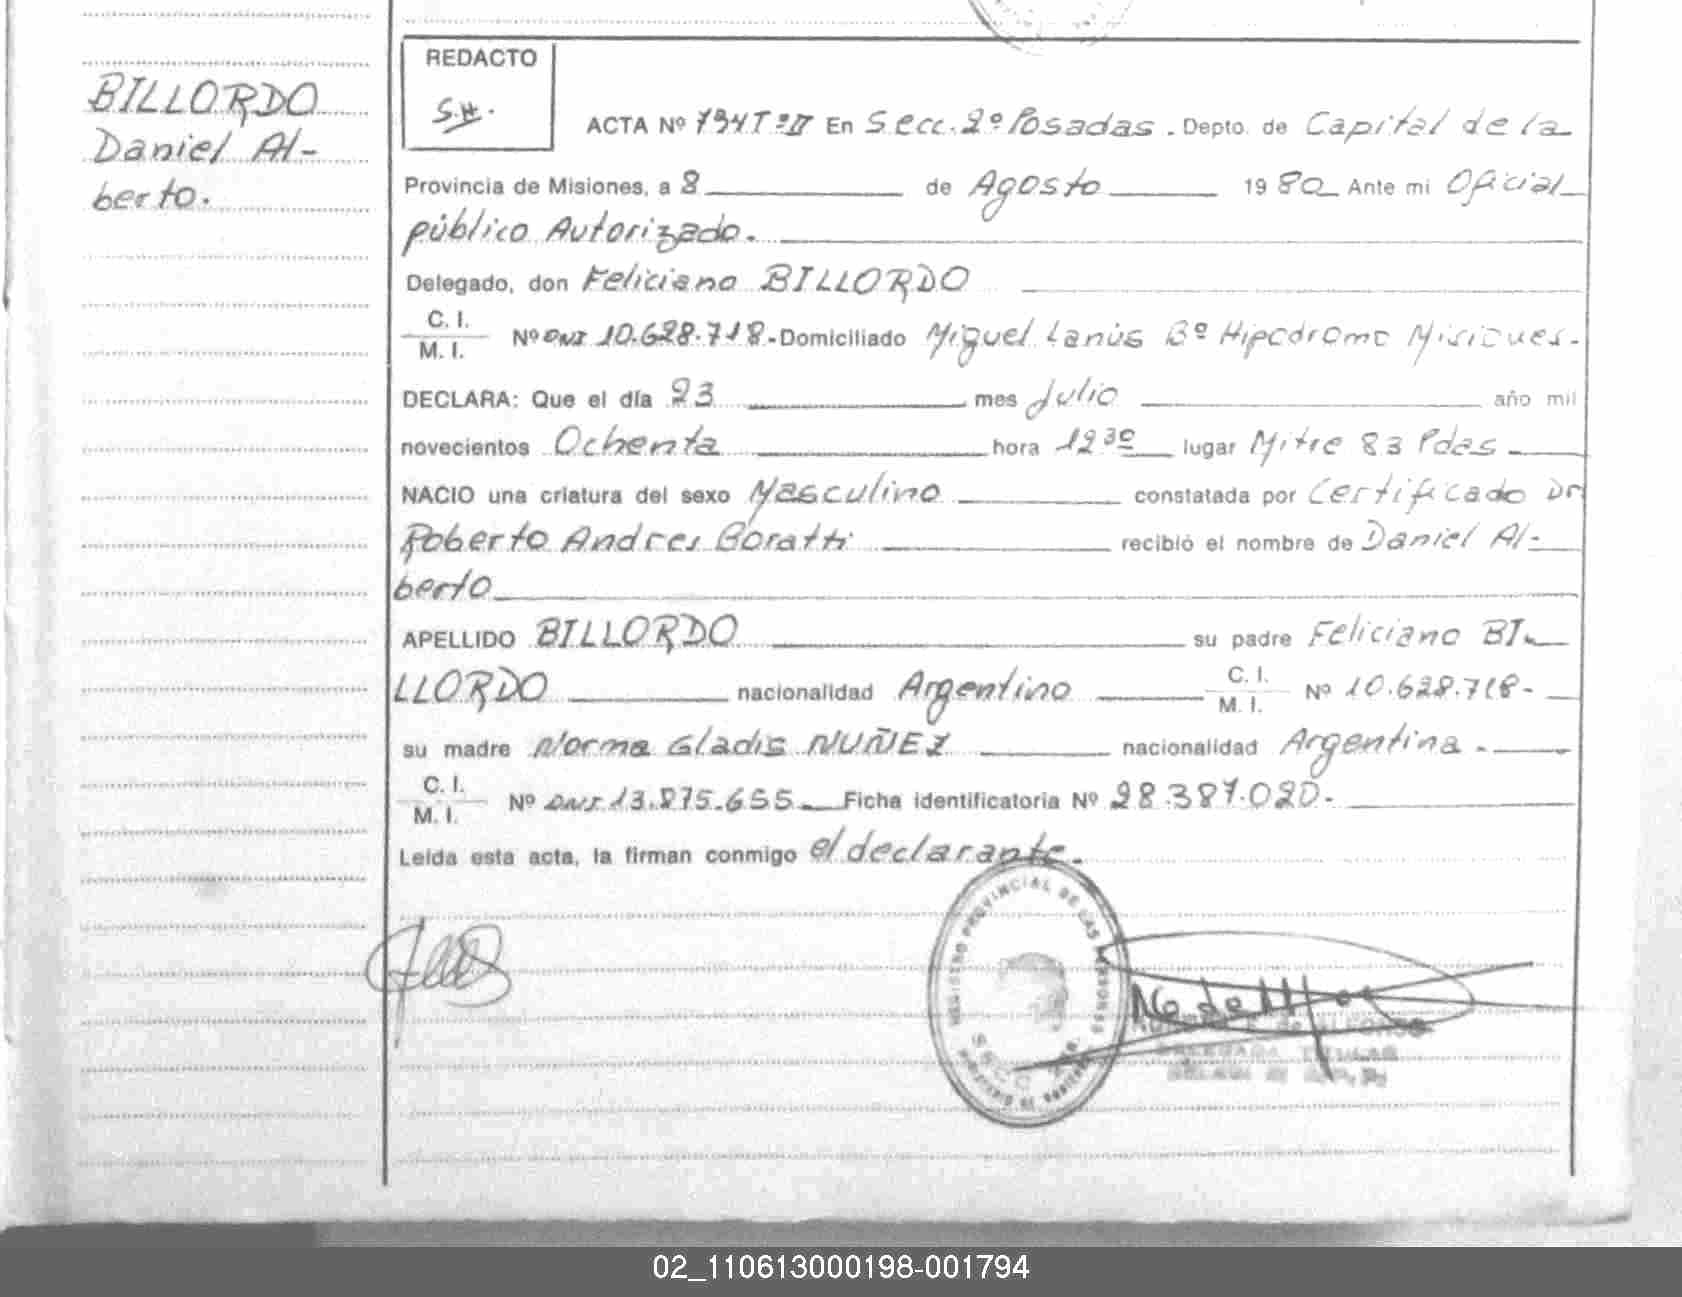 BILLORDO
Daniel Al-
berto.
REDACTO
S.H.
ACTA Nº 794 Tº II En Secc. 2º Posadas. Depto. de Capital de la
Provincia de Misiones, a 8 de Agosto 1980 Ante mi Oficial
público Autorizado.
Delegado, don Feliciano BILLORDO
C. I.
M. I. Nº DNI 10.628.718.- Domiciliado Miguel Lanús Bº Hipodromo Misiones.-
DECLARA: Que el día 23 mes Julio año mil
novecientos Ochenta hora 12 30 lugar Mitre 83 Pdas
NACIO una criatura del sexo Masculino constatada por Certificado Dr
Roberto Andres Boratti recibió el nombre de Daniel Al-
berto
APELLIDO BILLORDO su padre Feliciano BI-
LLORDO nacionalidad Argentino C. I. M. I. Nº 10.628.718-
su madre Norma Gladis NUÑEZ nacionalidad Argentina.-
C. I.
M. I. Nº DNI 13.875.655 Ficha identificatoria Nº 28.387.020-
Leída esta acta, la firman conmigo el declarante.
REGISTRO PROVINCIAL DE LAS PERSONAS
SECC.
DELEGADA TITULAR
02_110613000198-001794